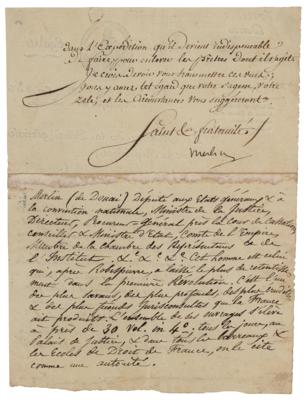 dans l'Expédition qu'il devient indispensable
de faire, pour enlever les prêtres dont il s'agit.
Je crois devoir vous transmettre ces vues;
vous y aurez tel égard que votre sagesse, votre
zèle, et les circonstances vous suggéreront.
Salut & fraternité
Merlin
Merlin (de Douai) Député aux Etats généraux & à
la convention nationale, Ministre de la Justice,
Directeur, Procureur-général près la Cour de Cassation,
conseiller & Ministre d'Etat, Comte de l'Empire,
Membre de la chambre des Représentans & de
l'Institut, &a &a &a. Cet homme est celui
qui, après Robespierre, a le plus
dans la première Révolution. C'est l'un
des plus savans, des plus profonds, des plus
& des plus Jurisconsultes que la France
ait produits. L'ensemble de ses ouvrages s'élève
à près de 30 vol. in 4o; tous les jours, au
Palais de Justice, & dans tous les Barreaux &
les Ecoles de Droit de France, on le cite
comme une autorité.